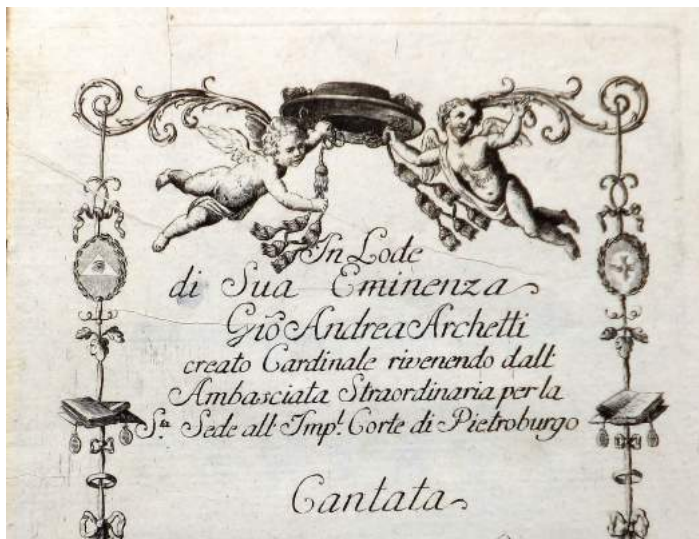 In Lode
di Sua Eminenza
Giõ Andrea Archetti
creato Cardinale rivenendo dall'
Ambasciata Straordinaria per la
S.ta Sede all' Imp.l Corte di Pietroburgo
Cantata